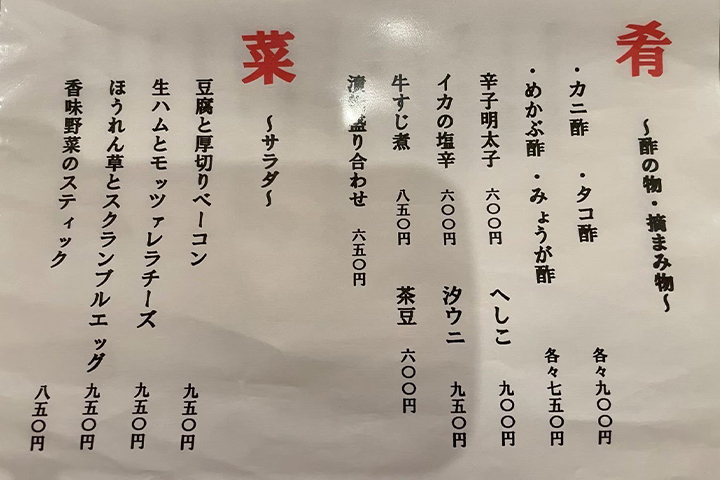 肴
〜酢の物・摘まみ物〜
・カニ酢 ・タコ酢 各々九〇〇円
・めかぶ酢 ・みょうが酢 各々七五〇円
辛子明太子 六〇〇円 へしこ 九〇〇円
イカの塩辛 六〇〇円 汐ウニ 九五〇円
牛すじ煮 八五〇円 茶豆 六〇〇円
漬 盛り合わせ 六五〇円
菜
〜サラダ〜
豆腐と厚切りベーコン 九五〇円
生ハムとモッツァレラチーズ 九五〇円
ほうれん草とスクランブルエッグ 九五〇円
香味野菜のスティック 八五〇円